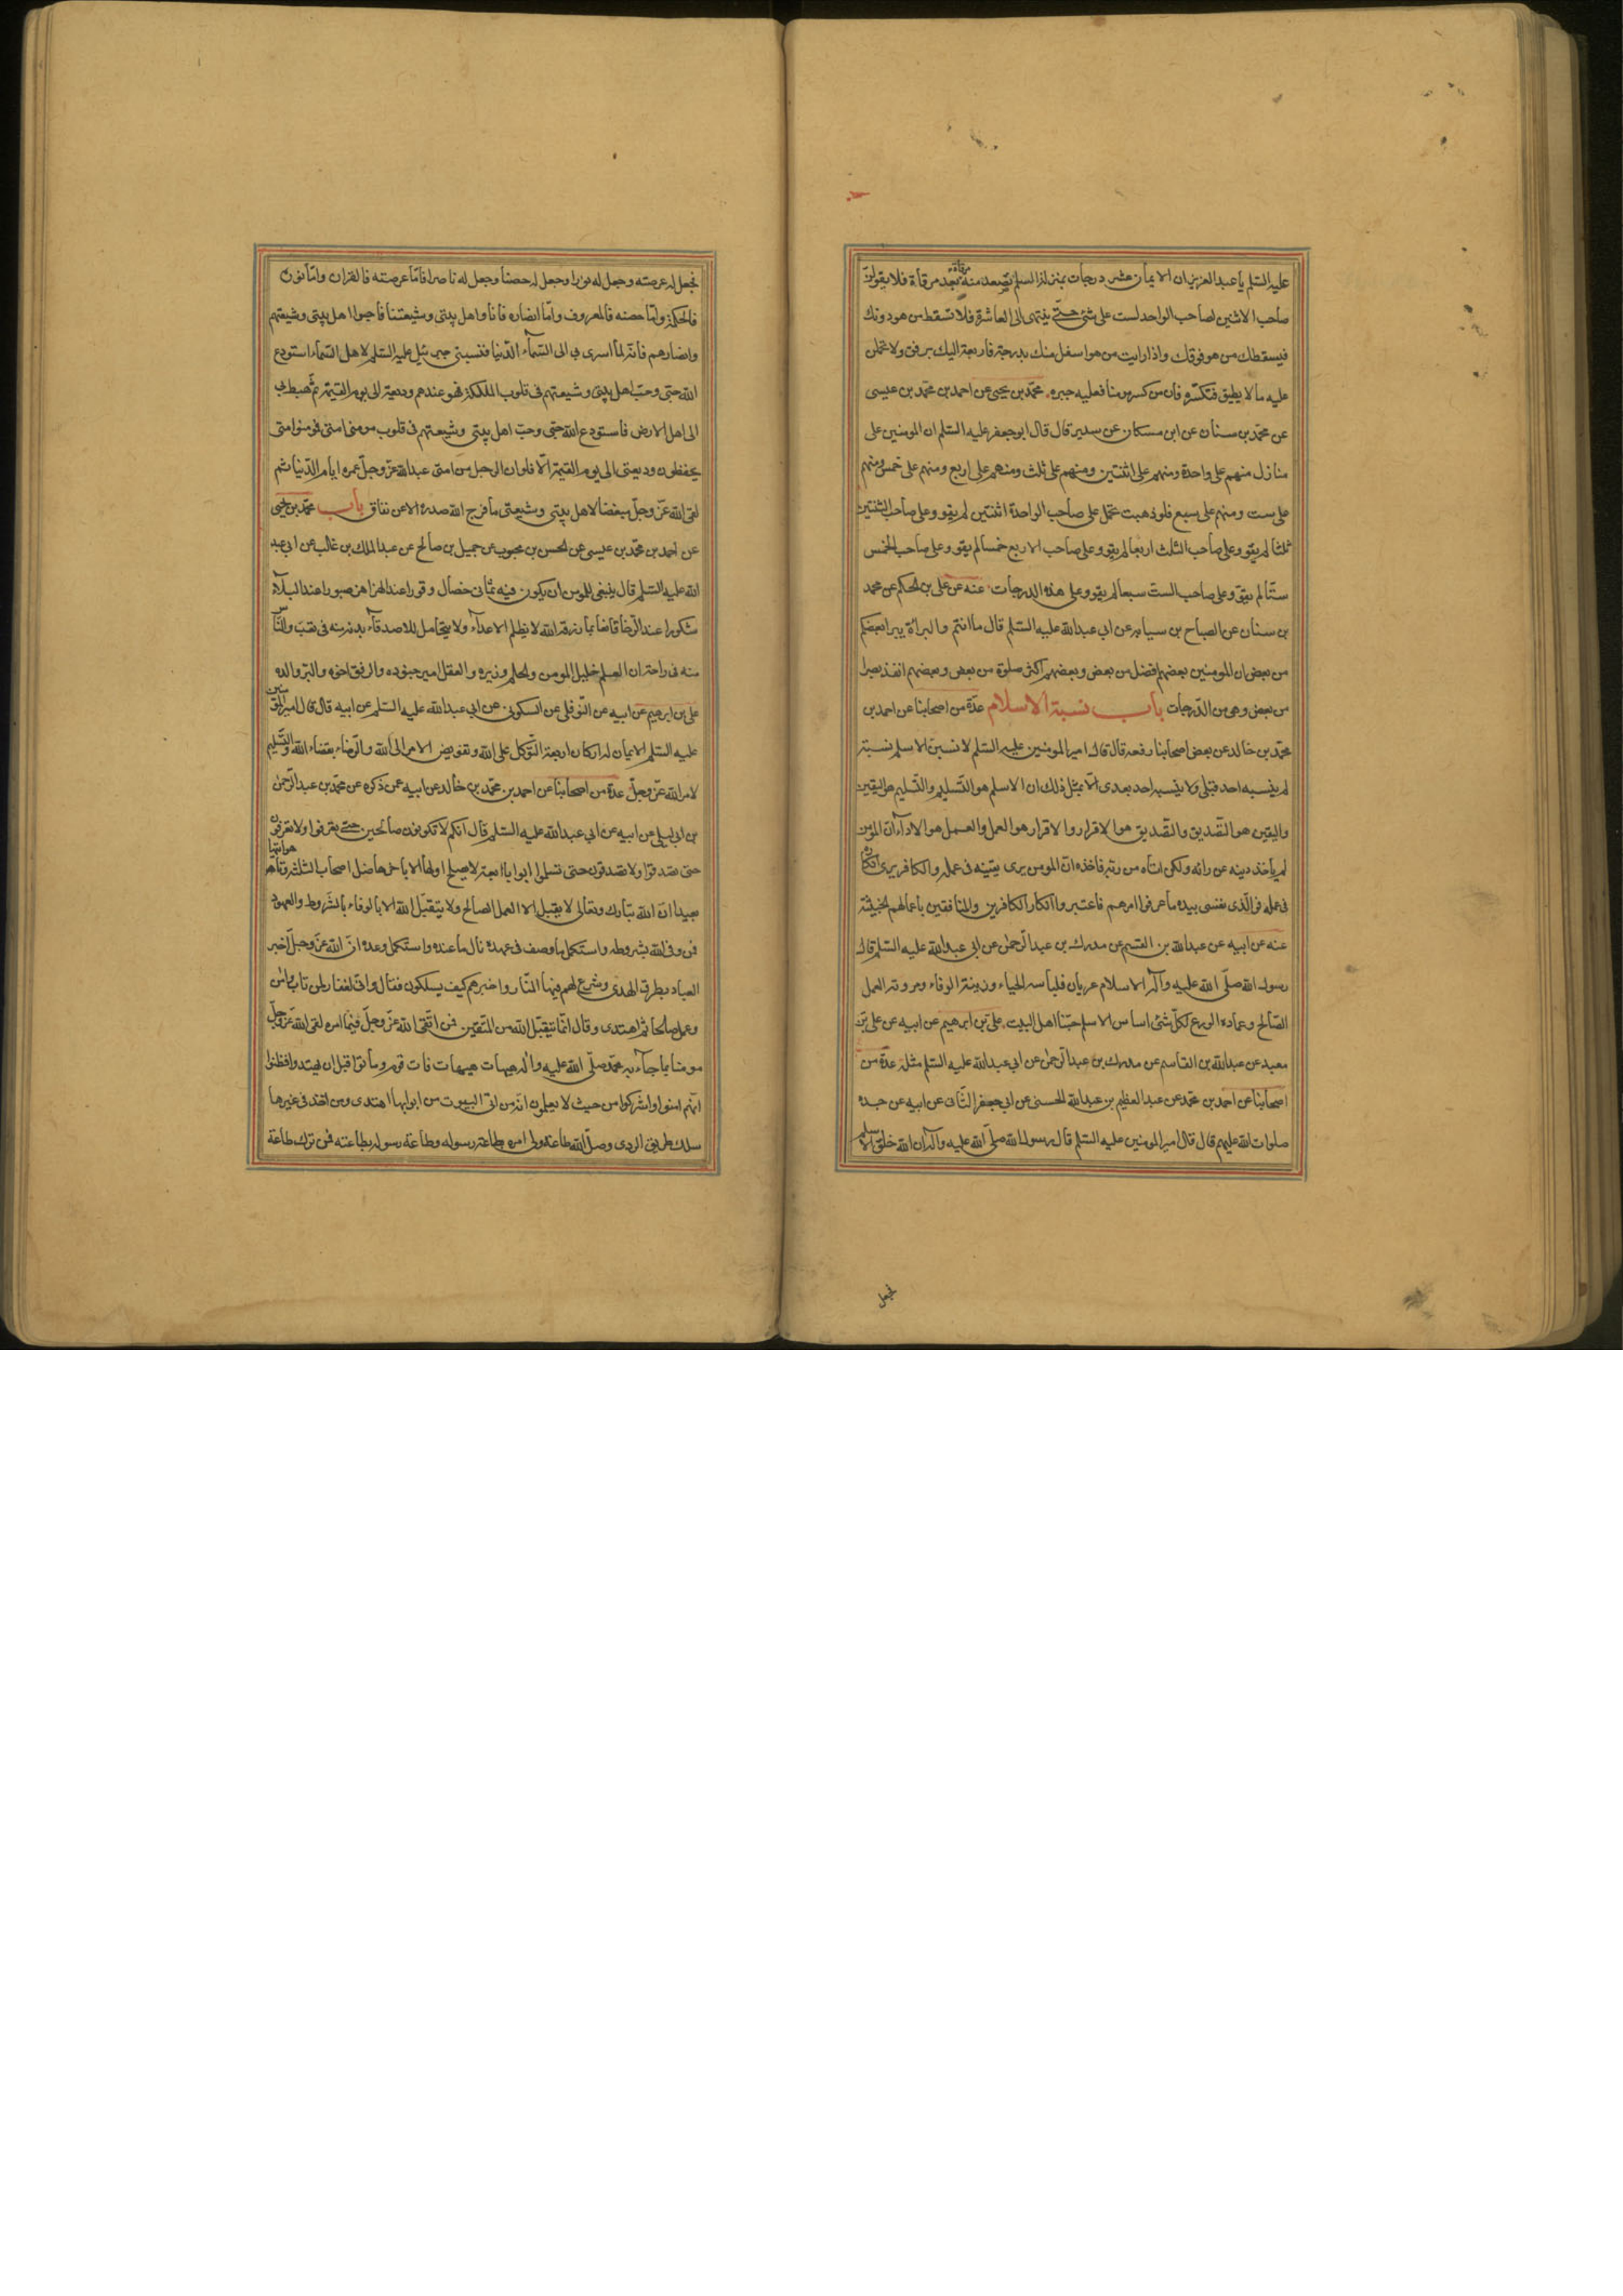 عليه السلم يا عبد العزيز ان الايمان عشر درجات بمنزلة السلم يصعد منه مرقاة بعد مرقاة فلا يقولن
صاحب الاثنين لصاحب الواحد لست على شئ حتى ينتهى الى العاشرة فلا تسقط من هو دونك
فيسقطك من هو فوقك واذا رايت من هو اسفل منك بدرجة فارفعه اليك برفق ولا تحملن
عليه ما لا يطيق فتكسره فان من كسر مومنا فعليه جبره محمد بن يحيى عن احمد بن محمد بن عيسى
عن محمد بن سنان عن ابن مسكان عن سدير قال قال ابو جعفر عليه السلم ان المومنين على
منازل منهم على واحدة ومنهم على اثنتين ومنهم على ثلث ومنهم على اربع ومنهم على خمس ومنهم
على ست ومنهم على سبع فلو ذهبت تحمل على صاحب الواحدة اثنتين لم يقو وعلى صاحب الثنتين
ثلثا لم يقو وعلى صاحب الثلث اربعا لم يقو وعلى صاحب الاربع خمسا لم يقو وعلى صاحب الخمس
ستا لم يقو وعلى صاحب الست سبعا لم يقو وعلى هذه الدرجات عنه عن على بن الحكم عن محمد
بن سنان عن الصباح بن سيابه عن ابي عبد الله عليه السلم قال ما انتم والبراءة يبرا بعضكم
من بعض ان المومنين بعضهم افضل من بعض وبعضهم اكثر صلوة من بعض وبعضهم انفذ بصرا
من بعض وهى من الدرجات باب نسبة الاسلام عدة من اصحابنا عن احمد بن
محمد بن خالد عن بعض اصحابنا رفعه قال قال امير المومنين عليه السلم لانسبن الاسلم نسبة
لم ينسبه احد قبلى ولا ينسبه احد بعدى الا بمثل ذلك ان الاسلم هو التسليم والتسليم هو اليقين
واليقين هو التصديق والتصديق هو الاقرار والاقرار هو العمل والعمل هو الاداء ان المومن
لم ياخذ دينه عن رائه ولكن اتاه من ربه فاخذه ان المومن يرى يقينه فى عمله والكافر يرى انكاره
فى عمله فو الذى نفسى بيده ما عرفوا امرهم فاعتبروا انكار الكافرين والمنافقين باعمالهم الخبيثة
عنه عن ابيه عن عبد الله بن القسم عن مدرك بن عبد الرحمن عن ابى عبد الله عليه السلم قال قال
رسول الله صلى الله عليه وآله الاسلام عريان فلباسه الحياء وزينته الوفاء ومروته العمل
الصالح وعماده الورع لكل شئ اساس واساس الاسلم حبنا اهل البيت على بن ابرهيم عن ابيه عن على بن
معبد عن عبد الله بن القاسم عن مدرك بن عبد الرحمن عن ابي عبد الله عليه السلم مثله عدة من
اصحابنا عن احمد بن محمد عن عبد العظيم بن عبد الله الحسنى عن ابى جعفر الثانى عن ابيه عن جده
صلوات الله عليهم قال قال امير المومنين عليه السلم قال رسول الله صلى الله عليه وآله ان الله خلق الاسلم
فجعل
فجعل له عرصة وجعل له نورا وجعل له حصنا وجعل له ناصرا فاما عرصته فالقران واما نوره
فالحكمة واما حصنه فالمعروف واما انصاره فانا واهل بيتى وشيعتنا فاحبوا اهل بيتى وشيعتهم
وانصارهم فانه لما اسرى بي الى السماء الدنيا فنسبنى جبرئيل عليه السلم لاهل السماء استودع
الله حبى وحب اهل بيتى وشيعتهم فى قلوب الملئكة فهو عندهم وديعة الى يوم القيمة ثم هبط بى
الى اهل الارض فاستودع الله حبى وحب اهل بيتى وشيعتهم فى قلوب مومنى امتى فمومنوا امتى
يحفظون وديعتى الى يوم القيمة الا فلو ان الرجل من امتى عبد الله عز وجل عمره ايام الدنيا ثم
لقى الله عز وجل مبغضا لاهل بيتى وشيعتى ما فرج الله صدره الا عن نفاق باب محمد بن يحيى
عن احمد بن محمد بن عيسى عن الحسن بن محبوب عن جميل بن صالح عن عبد الملك بن غالب عن ابي عبد
الله عليه السلم قال ينبغى للمومن ان يكون فيه ثمانى خصال وقورا عند الهزاهز صبورا عند البلاء
شكورا عند الرخا قانعا بما رزقه الله لا يظلم الاعداء ولا يتحامل للاصدقاء بدنه منه فى تعب والناس
منه فى راحة ان العلم خليل المومن والحلم وزيره والعقل امير جنوده والرفق اخوه والبر والده
على بن ابرهيم عن ابيه عن النوفلى عن السكونى عن ابي عبد الله عليه السلم عن ابيه قال قال امير المومنين
عليه السلم الايمان له اركان اربعة التوكل على الله وتفويض الامر الى الله والرضاء بقضاء الله والتسليم
لامر الله عز وجل عدة من اصحابنا عن احمد بن محمد بن خالد عن ابيه عمن ذكره عن محمد بن عبد الرحمن
بن ابى ليلى عن ابيه عن ابي عبد الله عليه السلم قال انكم لا تكونون صالحين حتى تعرفوا ولا تعرفون
حتى تصدقوا ولا تصدقون حتى تسلموا ابوابا اربعة لا يصلح اولها الا باخرها ضل اصحاب الثلثة وتاهوا تيها
بعيدا ان الله تبارك وتعالى لا يقبل الا العمل الصالح ولا يتقبل الله الا بالوفاء بالشروط والعهود
فمن وفى لله بشروطه واستكمل ما وصف فى عهده نال ما عنده واستكمل وعده ان الله عز وجل اخبر
العباد بطرق الهدى وشرع لهم فيها المنار واخبرهم كيف يسلكون فقال وانى لغفار لمن تاب وامن
وعمل صالحا ثم اهتدى وقال انما يتقبل الله من المتقين فمن اتقى الله عز وجل فيما امره لقى الله عز وجل
مومنا بما جاء به محمد صلى الله عليه وآله هيهات هيهات فات قوم وماتوا قبل ان يهتدوا فظنوا
انهم امنوا واشركوا من حيث لا يعلمون انه من اتى البيوت من ابوابها اهتدى ومن اخذ فى غيرها
سلك طريق الردى وصل الله طاعة ولى امره بطاعة رسوله وطاعة رسوله بطاعته فمن ترك طاعة